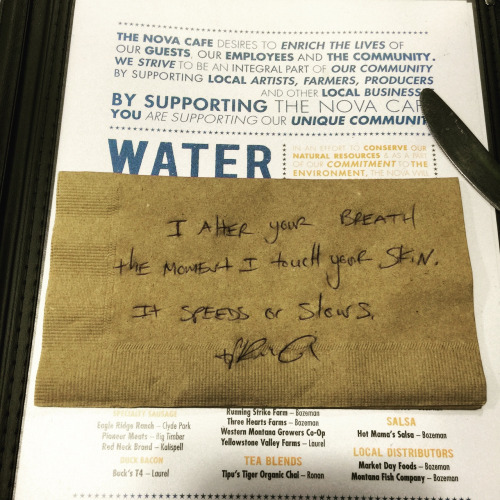 THE NOVA CAFE DESIRES TO ENRICH THE LIVES OF
OUR GUESTS, OUR EMPLOYEES AND THE COMMUNITY.
WE STRIVE TO BE AN INTEGRAL PART OF OUR COMMUNITY
BY SUPPORTING LOCAL ARTISTS, FARMERS, PRODUCERS
AND OTHER LOCAL BUSINESS
BY SUPPORTING THE NOVA CAF
YOU ARE SUPPORTING OUR UNIQUE COMMUNIT
WATER
IN AN EFFORT TO CONSERVE OUR
NATURAL RESOURCES & AS A PART
OF OUR COMMITMENT TO THE
ENVIRONMENT, THE NOVA WILL
I AlteR your BREATH
the MoMent I touch your SkiN.
It SPEEDS or Slows.
SPECIALTY SAUSAGE
Eagle Ridge Ranch – Clyde Park
Pioneer Meats – Big Timber
Red Neck Brand – Kalispell
DUCK BACON
Buck's T4 – Laurel
Running Strike Farm – Bozeman
Three Hearts Farms – Bozeman
Western Montana Growers Co-Op
Yellowstone Valley Farms – Laurel
TEA BLENDS
Tipu's Tiger Organic Chai – Ronan
SALSA
Hot Mama's Salsa – Bozeman
LOCAL DISTRIBUTORS
Market Day Foods – Bozeman
Montana Fish Company – Bozeman